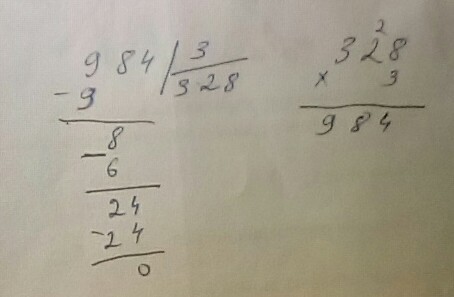 984 | 3
- 9
328
8
- 6
24
- 24
0
2
328
x 3
984